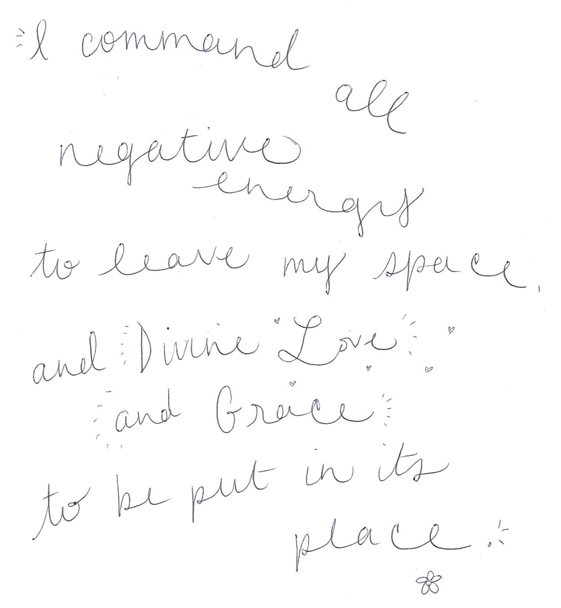 I command
all
negative
energy
to leave my space,
and Divine Love
and Grace
to be put in its
place.